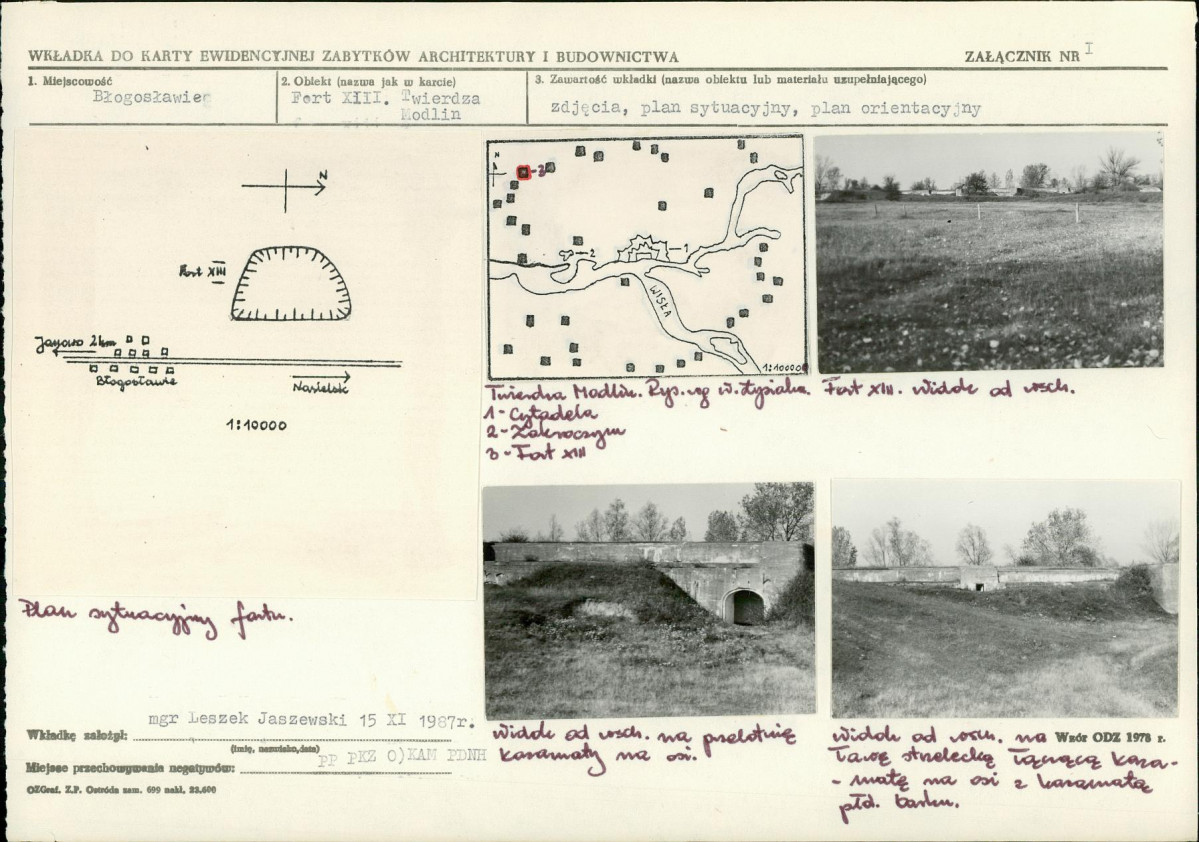 WKŁADKA DO KARTY EWIDENCYJNEJ ZABYTKÓW ARCHITEKTURY I BUDOWNICTWA
ZAŁĄCZNIK NR I
1. Miejscowość
Błogosławiec
2. Obiekt (nazwa jak w karcie)
Fort XIII. Twierdza
Modlin
3. Zawartość wkładki (nazwa obiektu lub materiału uzupełniającego)
zdjęcia, plan sytuacyjny, plan orientacyjny
N
Fort XIII
Janowo 2km
Błogosławie
Nasielsk
1:10000
Plan sytuacyjny fortu.
N
3
2
1
WISŁA
1:100000
Twierdza Modlin. Rys. wg W. Łysiaka.
1 - Cytadela
2 - Zakroczym
3 - Fort XIII
Fort XIII. Widok od wsch.
Widok od wsch. na przelotnię
kazamaty na osi.
Widok od wsch. na
ławę strzelecką łączącą kaza-
- matę na osi z kazamatą
płd. barku.
Wzór ODZ 1978 r.
Wkładkę założył: mgr Leszek Jaszewski 15 XI 1987r.
(imię, nazwisko, data)
Miejsce przechowywania negatywów: PP PKZ O)KAM PDNH
OZGraf. Z.P. Ostróda zam. 699 nakł. 23.600